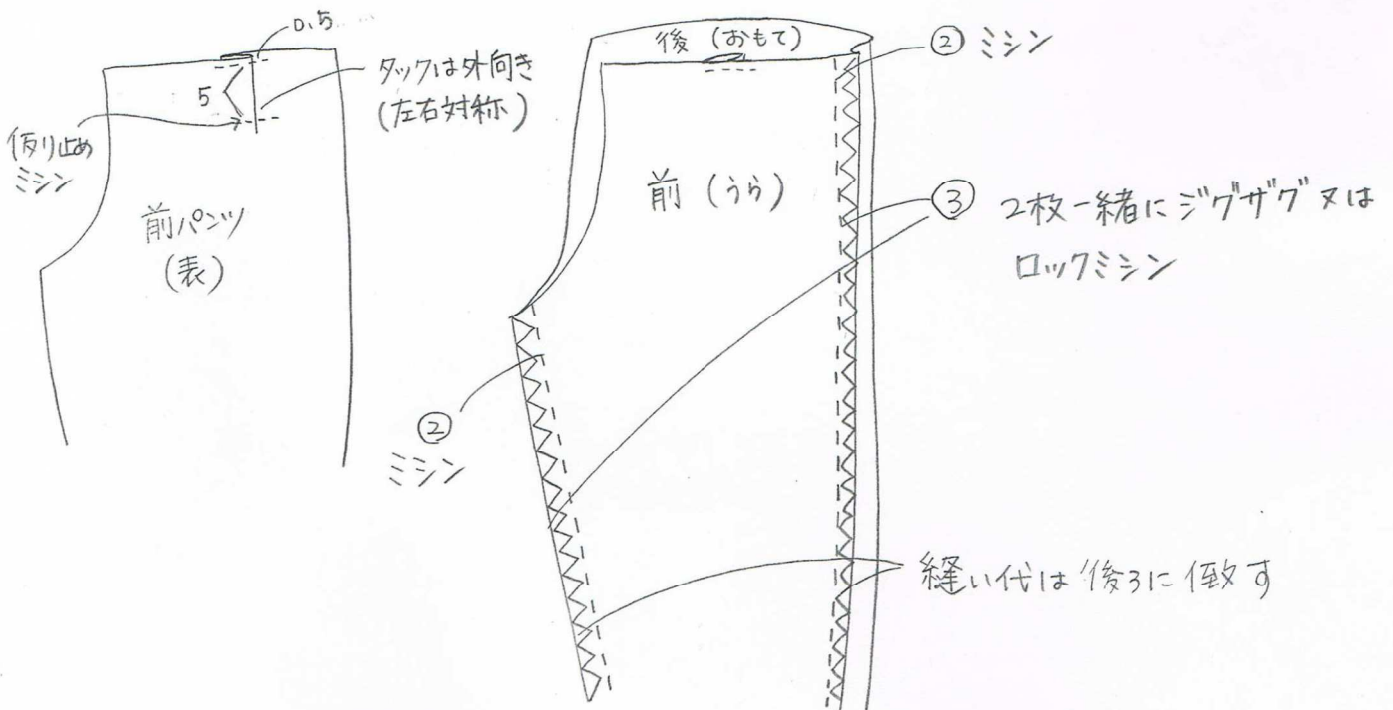 0.5
5
タックは外向き
(左右対称)
仮り止め
ミシン
前パンツ
(表)
後(おもて)
② ミシン
前(うら)
③ 2枚一緒にジグザグ又は
ロックミシン
②
ミシン
縫い代は後ろに倒す